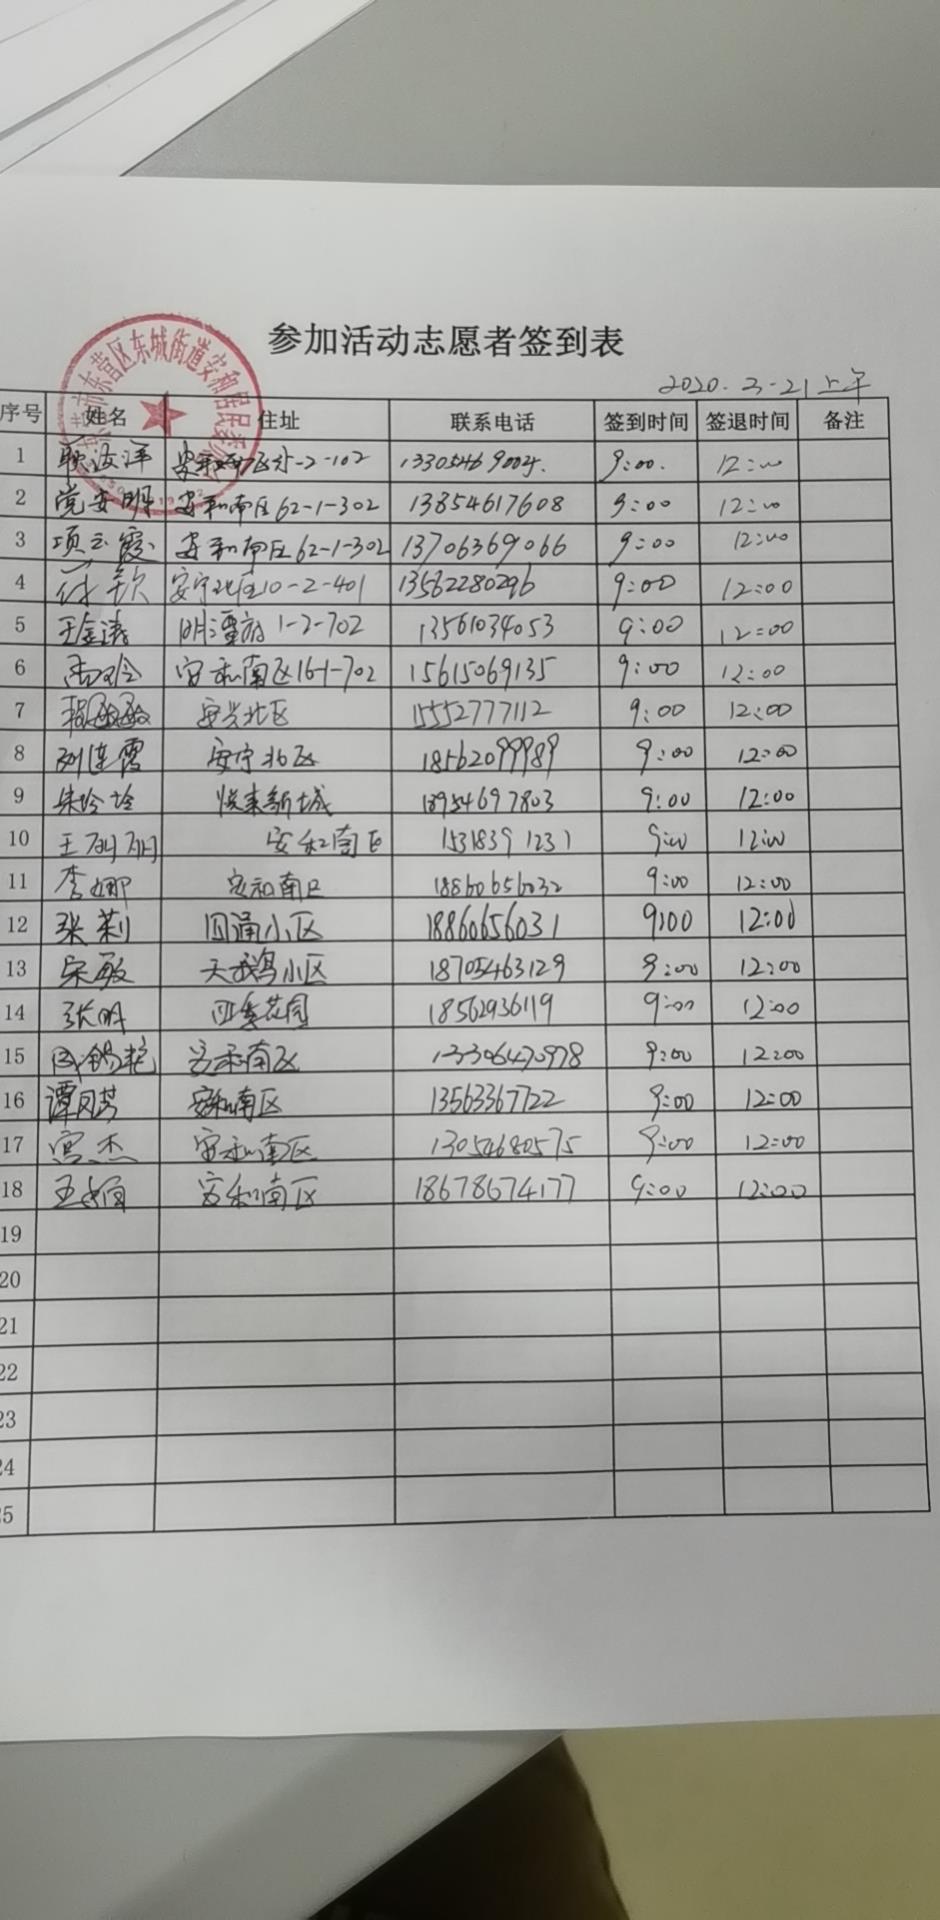 参加活动志愿者签到表
东营区东城街道安和居民委
2020.3.21上午
序号 姓名 住址 联系电话 签到时间 签退时间 备注
1 安和南区 -2-102 13305469004. 9:00. 12:00
2 党安明 安和南区62-1-302 13854617608 9:00 12:00
3 项玉霞 安和南区62-1-302 13706369066 9:00 12:00
4 付钦 安宁北区10-2-401 13562280296 9:00 12:00
5 王金涛 明潭府1-2-702 13561034053 9:00 12:00
6 安和南区16-1-702 15615069135 9:00 12:00
7 安兴北区 15552777112 9:00 12:00
8 刘连霞 安宁北区 18562099989 9:00 12:00
9 朱玲玲 悦来新城 18954697803 9:00 12:00
10 王丽丽 安和南区 15318391231 9:00 12:00
11 李娜 安和南区 18860656032 9:00 12:00
12 张莉 园通小区 18860656031 9:00 12:00
13 宋敏 天鹅小区 18705463129 9:00 12:00
14 张明 花园 18562936119 9:00 12:00
15 安和南区 13306470978 9:00 12:00
16 谭凤芳 安和南区 13563367722 9:00 12:00
17 宫杰 安和南区 13054680575 9:00 12:00
18 安和南区 18678674177 9:00 12:00
19
20
21
22
23
24
25